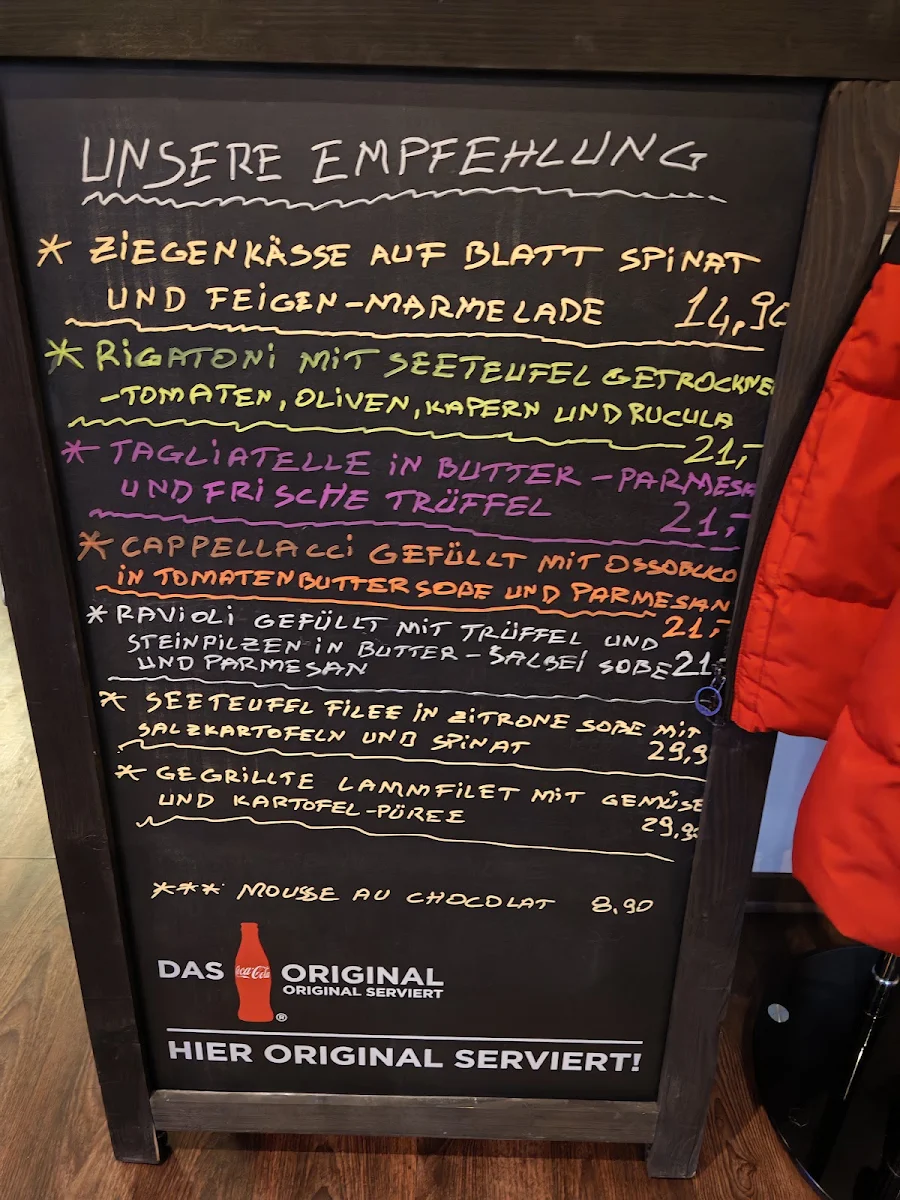 UNSERE EMPFEHLUNG
* ZIEGENKÄSSE AUF BLATT SPINAT
UND FEIGEN-MARMELADE 14,90
* RIGATONI MIT SEETEUFEL GETROCKNE
-TOMATEN, OLIVEN, KAPERN UND RUCULA
21,-
* TAGLIATELLE IN BUTTER-PARMESAN
UND FRISCHE TRÜFFEL 21,-
* CAPPELLACCI GEFÜLLT MIT OSSOBUCO
IN TOMATENBUTTERSOßE UND PARMESAN
21,-
* RAVIOLI GEFÜLLT MIT TRÜFFEL UND
STEINPILZEN IN BUTTER-SALBEI SOßE 21,-
UND PARMESAN
* SEETEUFEL FILEE IN ZITRONE SOßE MIT
SALZKARTOFELN UND SPINAT 29,9
* GEGRILLTE LAMMFILET MIT GEMÜSE
UND KARTOFEL-PÜREE 29,9
*** MOUSSE AU CHOCOLAT 8,90
DAS Coca-Cola ORIGINAL
ORIGINAL SERVIERT
®
HIER ORIGINAL SERVIERT!